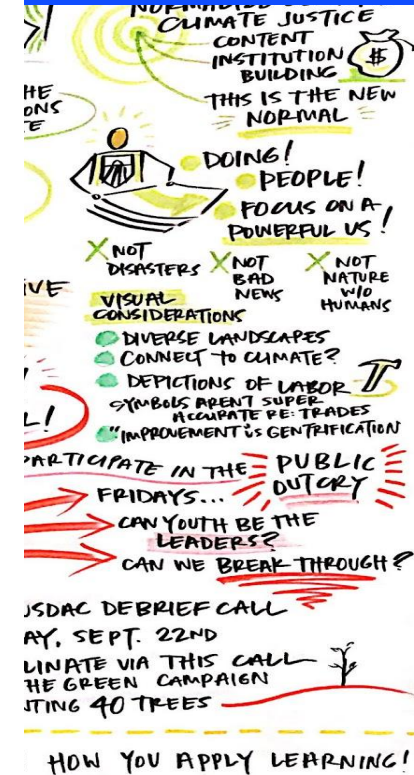 CLIMATE JUSTICE
CONTENT
INSTITUTION
BUILDING
$
THIS IS THE NEW
NORMAL
HE
ONS
E
DOING!
PEOPLE!
FOCUS ON A
POWERFUL US!
X NOT
DISASTERS
X NOT
BAD
NEWS
X NOT
NATURE
W/O
HUMANS
VE
VISUAL
CONSIDERATIONS
DIVERSE LANDSCAPES
CONNECT TO CLIMATE?
DEPICTIONS OF LABOR
SYMBOLS ARENT SUPER
ACCURATE RE: TRADES
"IMPROVEMENT is GENTRIFICATION
L!
PARTICIPATE IN THE
PUBLIC
OUTCRY
FRIDAYS...
CAN YOUTH BE THE
LEADERS?
CAN WE BREAK THROUGH?
USDAC DEBRIEF CALL
AY, SEPT. 22ND
LINATE VIA THIS CALL
HE GREEN CAMPAIGN
NTING 40 TREES
HOW YOU APPLY LEARNING!